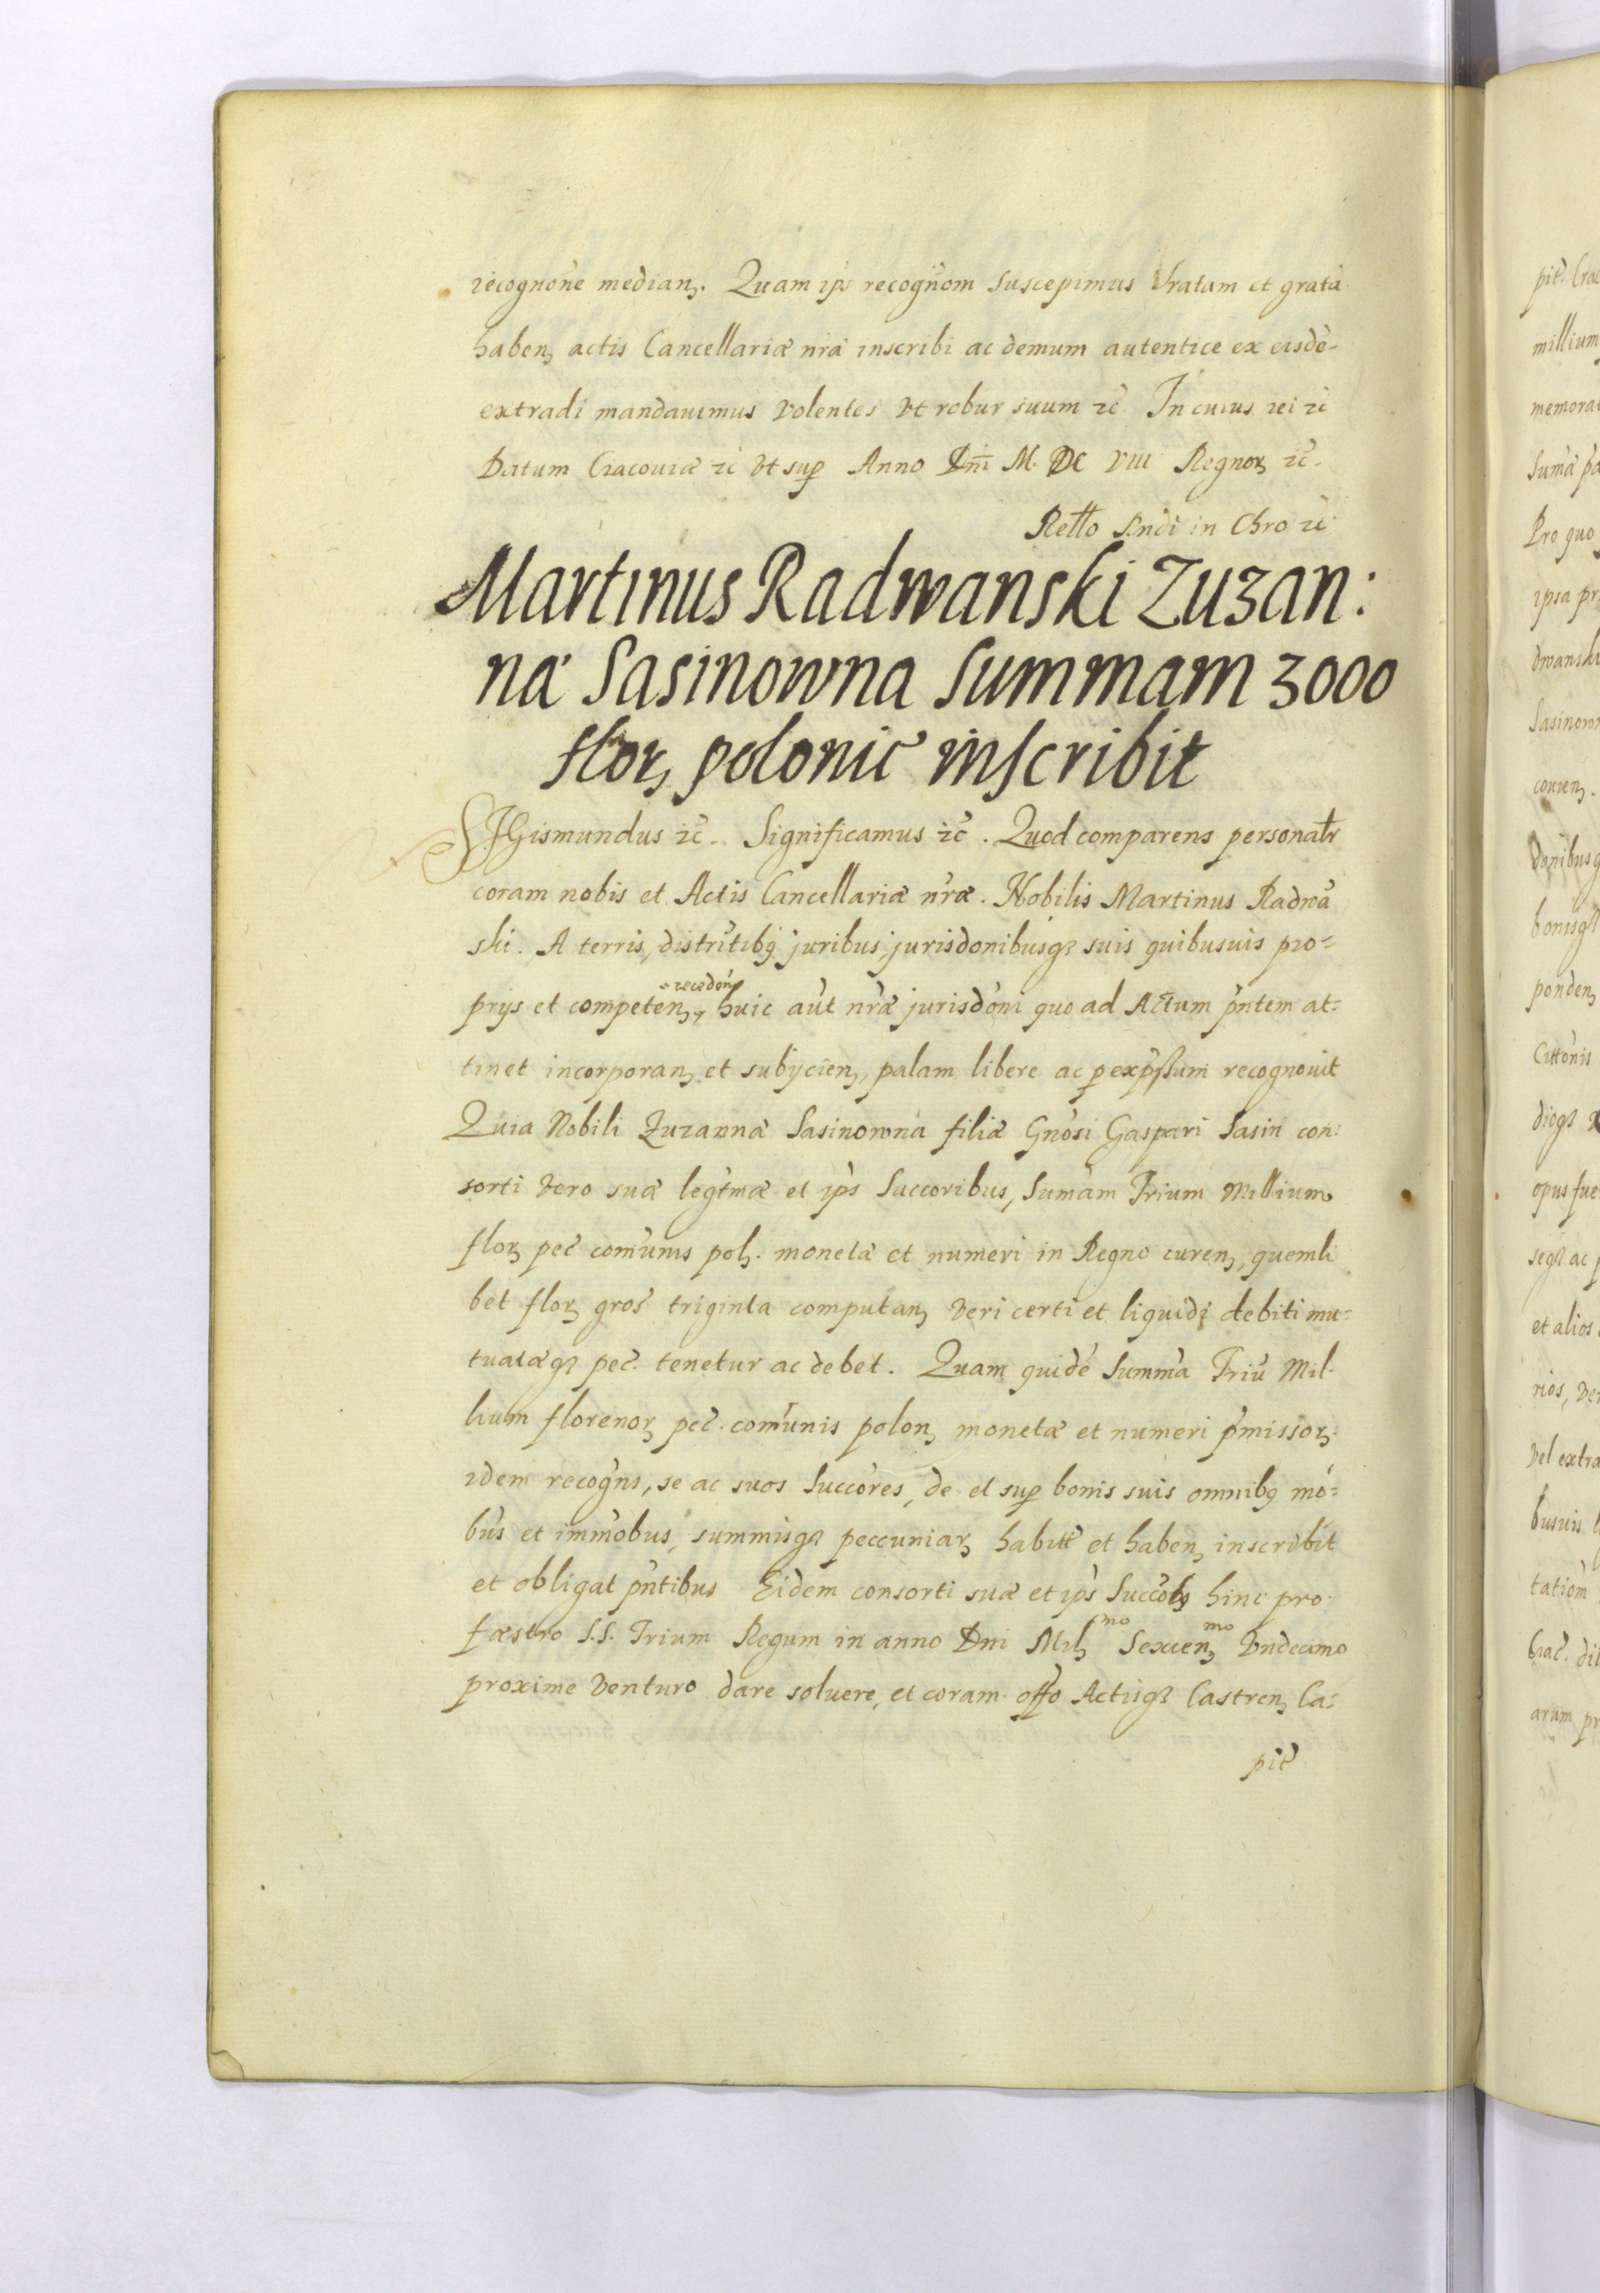 recognone̅ medianʒ. Quam ip̅s recogno̅m suscepimus Vratam et grata̅
habenʒ actis Cancellariæ nr̅a inscribi ac demum autentice ex eisde̅-
extradi mandauimus volentes vt robur suum ꝛc̅ In cuius rei ꝛc̅
Datum Cracouiæ ꝛc̅ vt sup̱ Anno Dni̅ M. DC VIII Regnoꝝ ꝛc̅.
Retto Sndi̅ in Chro ꝛc̅
Martinus Radwanski Zuzan:
na̅ Sasinowna Summam 3000
floꝝ polonic̅ inscribit
SIGismundus ꝛc̅. Significamus ꝛc̅. Quod comparens personalr̅
coram nobis et Actis Cancellariæ nr̅æ. Nobilis Martinus Radwa̅
ski. A terris, distri̅tibꝫ juribus, jurisdo̅nibusqꝫ suis quibusuis pro=
prijs et competenʒ, recedenʒ huic au̅t nr̅æ jurisdo̅ni quo ad Actum pn̅tem at=
tinet incorporanʒ et subijcienʒ, palam libere ac p̱ exp̅ssum recognouit
Quia Nobili Zuzannæ Sasinowna filiæ Gno̅si Gaspari Sasin con:
sorti vero suæ legt̅mæ et ip̅s Succoribus, Sum̅am Trium Millium
floꝝ pec̅ com̅unis polʒ. moneta̅ et numeri in Regno curenʒ, quemli
bet floꝝ gros̅ triginta computanʒ veri certi et liquidi debiti mu=
tuatæqꝫ pec̅. tenetur ac debet. Quam quide̅ Summa̅ Triu̅ Mil-
lium florenoꝝ pec̅. com̅unis polonʒ monetæ et numeri p̅missoꝝ
idem recogn̅s, se ac suos Succo̅res, de et sup̱ bonis suis omnibꝫ mo̅=
bu̅s et immo̅bus, summisqꝫ peccuniaꝝ habitt̅ et habenʒ inscribit
et obligat pn̅tibus Eidem consorti suæ et ip̅s Succo̅bs hinc pro
fæstro S.S. Trium Regum in anno Dni Milʒ mo Sexcenʒ mo Vndecimo
proxime venturo dare soluere, et coram offo̅ Actisqꝫ Castrenʒ Ca=
pit̅